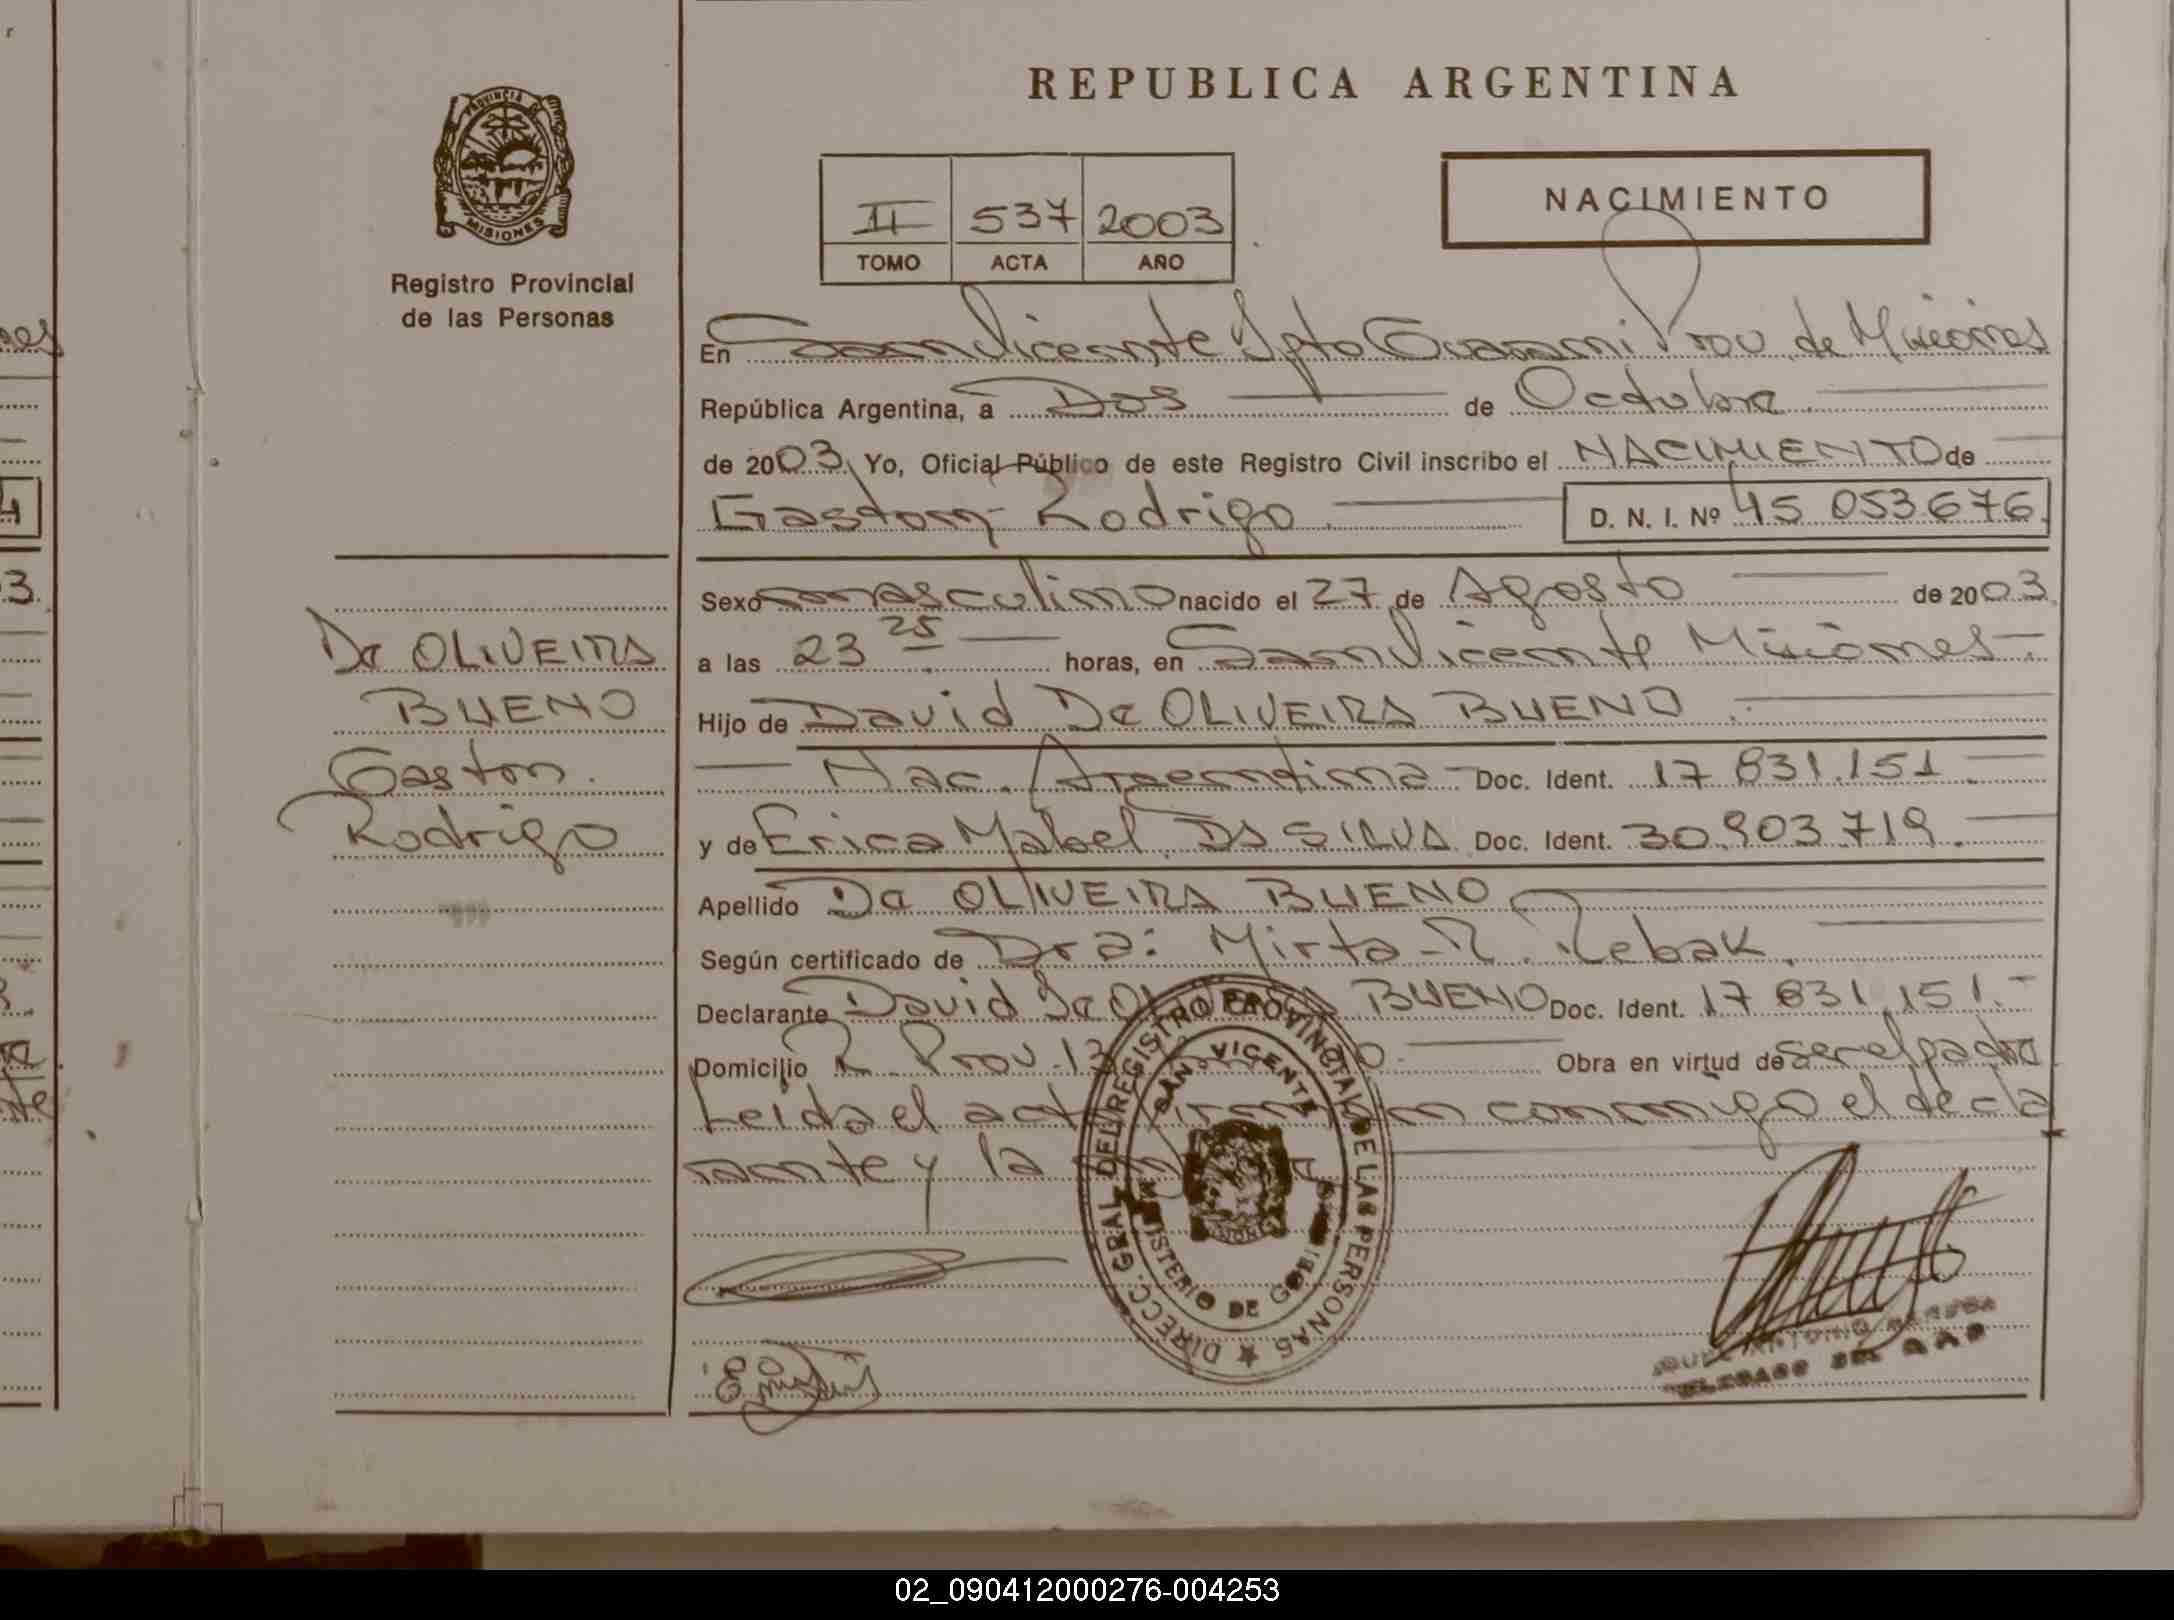 REPUBLICA ARGENTINA
PROVINCIA DE
MISIONES
Registro Provincial
de las Personas
II 537 2003
TOMO ACTA AÑO
NACIMIENTO
En San Vicente Dpto Guarani Prov. de Misiones
República Argentina, a Dos de Octubre
de 2003. Yo, Oficial Público de este Registro Civil inscribo el NACIMIENTO de
Gaston Rodrigo D. N. I. Nº 45 053676
Sexo masculino nacido el 27 de Agosto de 2003
a las 23 25 horas, en San Vicente Misiones
Hijo de David De OLIVEIRA BUENO
Nac. Argentina Doc. Ident. 17 831.151
y de Erica Mabel DA SILVA Doc. Ident. 30.903.719
Apellido De OLIVEIRA BUENO
Según certificado de Dra: Mirta R. Rebak
Declarante David De BUENO Doc. Ident. 17 831.151
Domicilio R. Prov. 13 Obra en virtud de ser el padre
Leida el conmigo el decla
rante y la
De OLIVEIRA
BUENO
Gaston
Rodrigo
DIRECC. GRAL. DEL REGISTRO PROVINCIAL DE LAS PERSONAS
SAN VICENTE
MINISTERIO DE GOBIERNO
02_090412000276-004253